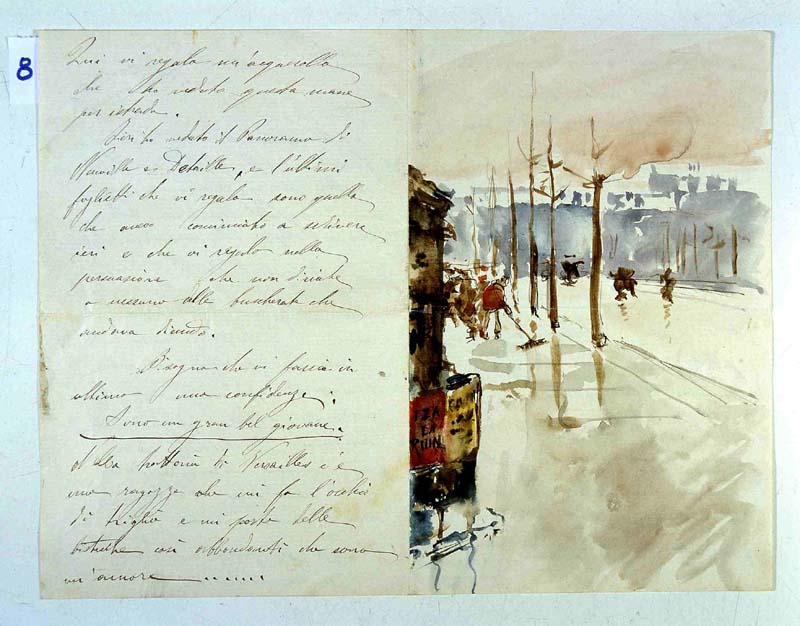 8
Qui vi regalo un'acquerello
che ho veduto questa mane
per istrada.
Ieri ho veduto il Panorama di
Neuville e Detaille, e l'ultimi
foglietti che vi regalo sono quella
che avevo cominciato a scrivere
ieri e che vi regalo nella
persuasione che non direte
a nessuno alle buscherate che
andava dicendo.
Bisogna che vi faccia in
ultimo una confidenza:
Sono un gran bel giovane.
alla trattoria di Versailles c'è
una ragazza che mi fa l'occhio
di triglia e mi porta delle
bistecche così abbondanti che sono
un'amore
ZA
LA